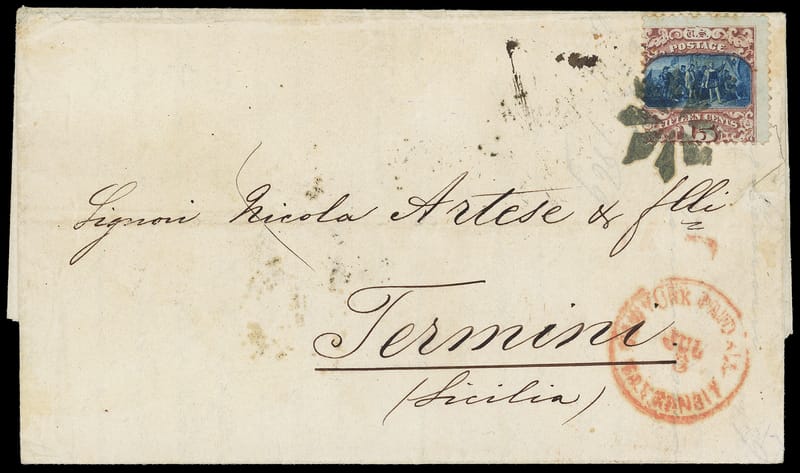 U.S.
POSTAGE
FIFTEEN CENTS
15
Signori Nicola Artese & flli
Termini.
(Sicilia)
NEW YORK PAID ALL
JUL
BR. TRANSIT